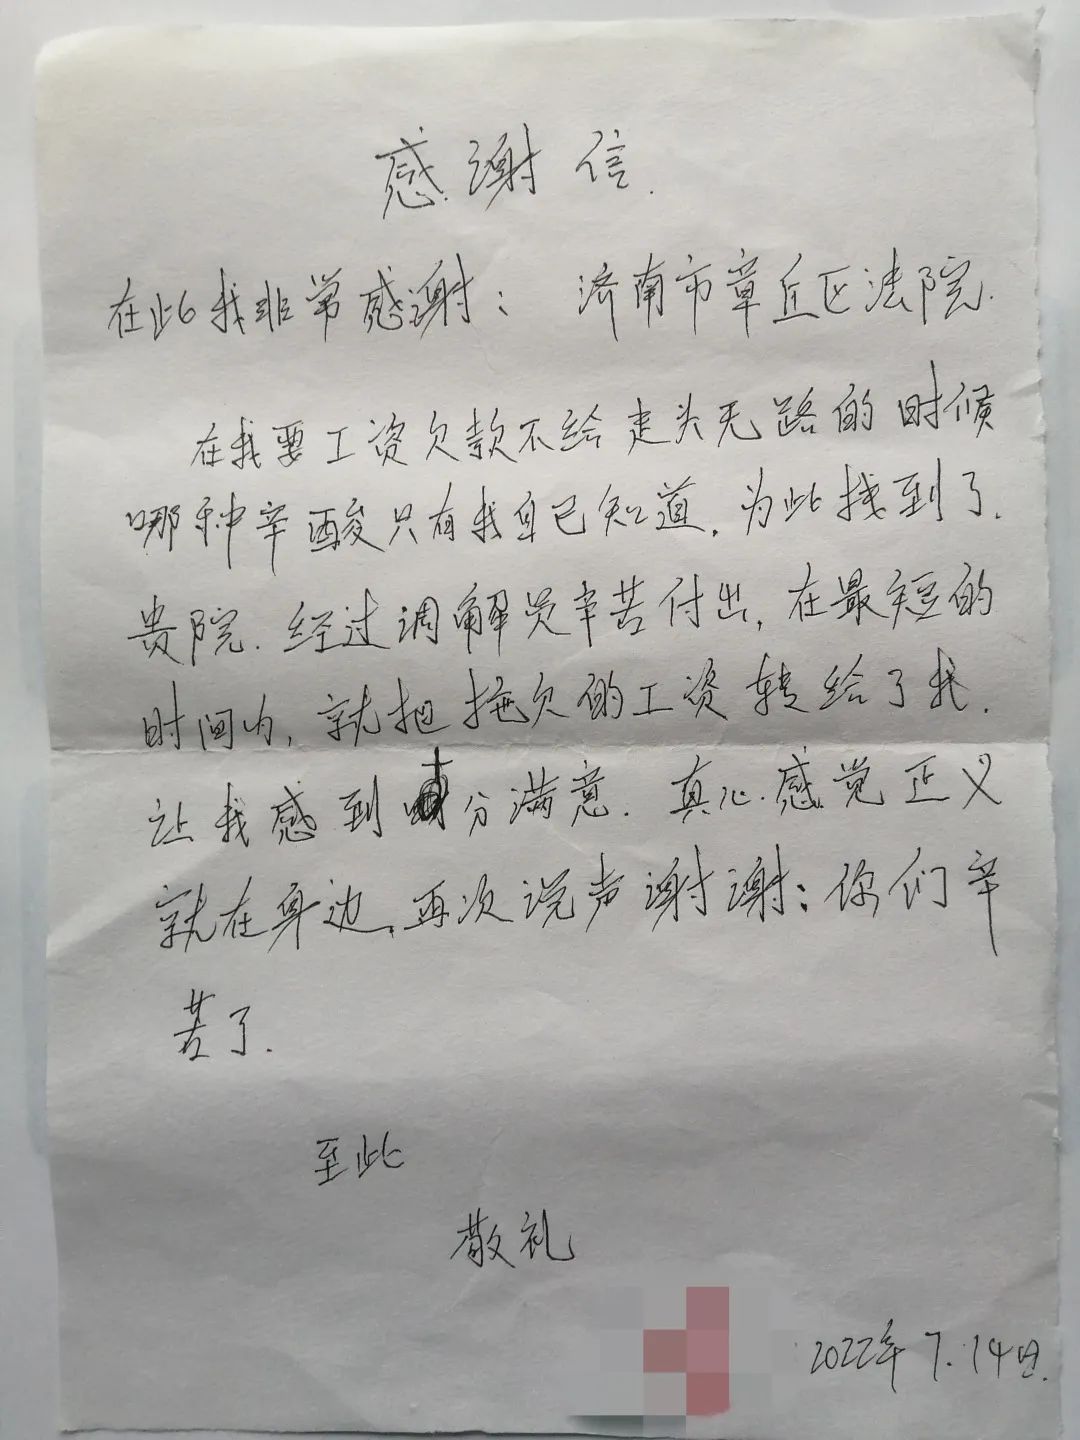 感谢信.
在此我非常感谢： 济南市章丘区法院.
在我要工资欠款不给走头无路的时候
哪种辛酸只有我自己知道，为此找到了.
贵院.经过调解员辛苦付出，在最短的
时间内，就把拖欠的工资转给了我.
让我感到十分满意.真心感觉正义
就在身边，再次说声谢谢：你们辛
苦了.
至此
敬礼
2022年7.14日.